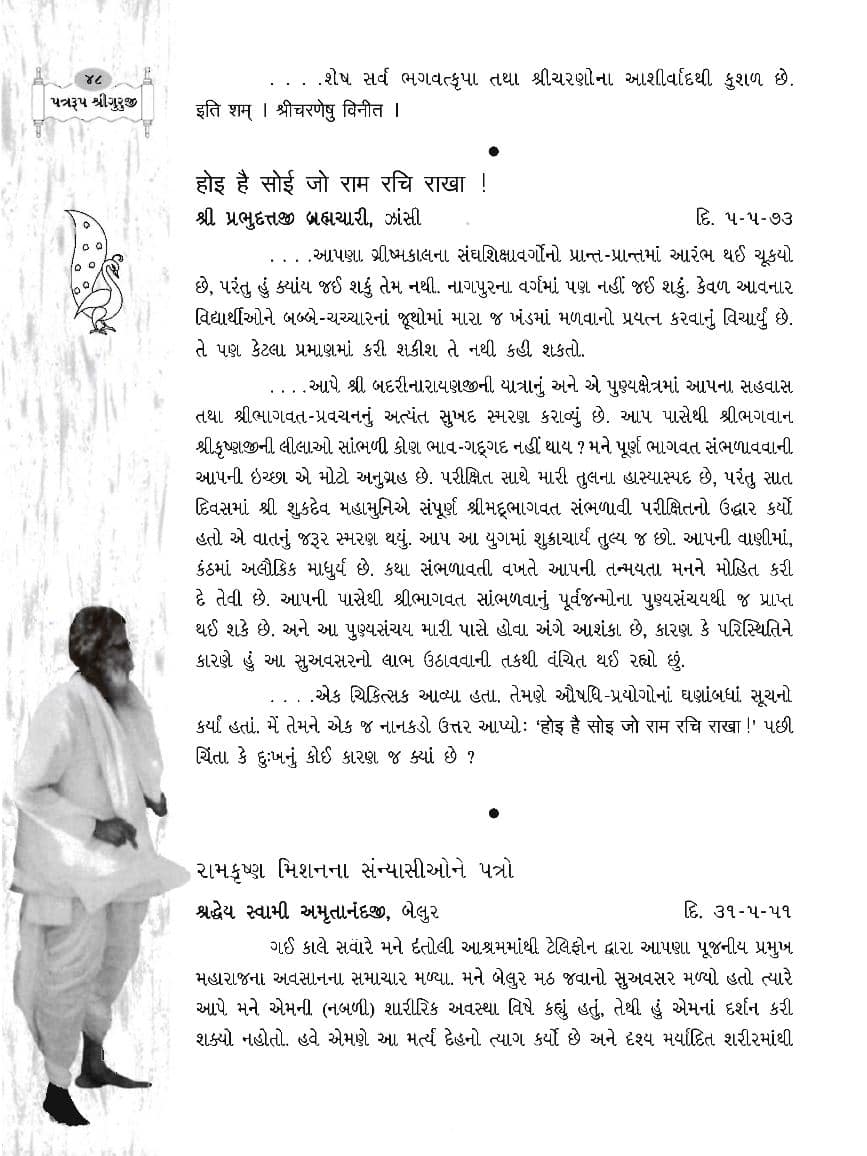 ૪૮
પત્રરૂપ શ્રીગુરુજી
. . . .શેષ સર્વ ભગવત્કૃપા તથા શ્રીચરણોના આશીર્વાદથી કુશળ છે.
इति शम् । श्रीचरणेषु विनीत ।
●
होइ है सोई जो राम रचि राखा !
શ્રી પ્રભુદત્તજી બ્રહ્મચારી, ઝાંસી દિ. ૫-૫-૭૩
. . . .આપણા ગ્રીષ્મકાલના સંઘશિક્ષાવર્ગોનો પ્રાન્ત-પ્રાન્તમાં આરંભ થઈ ચૂકયો
છે, પરંતુ હું ક્યાંય જઈ શકું તેમ નથી. નાગપુરના વર્ગમાં પણ નહીં જઈ શકું. કેવળ આવનાર
વિદ્યાર્થીઓને બબ્બે-ચચ્ચારનાં જૂથોમાં મારા જ ખંડમાં મળવાનો પ્રયત્ન કરવાનું વિચાર્યું છે.
તે પણ કેટલા પ્રમાણમાં કરી શકીશ તે નથી કહી શકતો.
. . . .આપે શ્રી બદરીનારાયણજીની યાત્રાનું અને એ પુણ્યક્ષેત્રમાં આપના સહવાસ
તથા શ્રીભાગવત-પ્રવચનનું અત્યંત સુખદ સ્મરણ કરાવ્યું છે. આપ પાસેથી શ્રીભગવાન
શ્રીકૃષ્ણજીની લીલાઓ સાંભળી કોણ ભાવ-ગદ્ગદ નહીં થાય ? મને પૂર્ણ ભાગવત સંભળાવવાની
આપની ઇચ્છા એ મોટો અનુગ્રહ છે. પરીક્ષિત સાથે મારી તુલના હાસ્યાસ્પદ છે, પરંતુ સાત
દિવસમાં શ્રી શુકદેવ મહામુનિએ સંપૂર્ણ શ્રીમદ્ભાગવત સંભળાવી પરીક્ષિતનો ઉદ્ધાર કર્યો
હતો એ વાતનું જરૂર સ્મરણ થયું. આપ આ યુગમાં શુક્રાચાર્ય તુલ્ય જ છો. આપની વાણીમાં,
કંઠમાં અલૌકિક માધુર્ય છે. કથા સંભળાવતી વખતે આપની તન્મયતા મનને મોહિત કરી
દે તેવી છે. આપની પાસેથી શ્રીભાગવત સાંભળવાનું પૂર્વજન્મોના પુણ્યસંચયથી જ પ્રાપ્ત
થઈ શકે છે. અને આ પુણ્યસંચય મારી પાસે હોવા અંગે આશંકા છે, કારણ કે પરિસ્થિતિને
કારણે હું આ સુઅવસરનો લાભ ઉઠાવવાની તકથી વંચિત થઈ રહ્યો છું.
. . . .એક ચિકિત્સક આવ્યા હતા. તેમણે ઔષધિ-પ્રયોગોનાં ઘણાંબધાં સૂચનો
કર્યાં હતાં. મેં તેમને એક જ નાનકડો ઉત્તર આપ્યોઃ ‘होइ है सोइ जो राम रचि राखा !’ પછી
ચિંતા કે દુઃખનું કોઈ કારણ જ ક્યાં છે ?
●
રામકૃષ્ણ મિશનના સંન્યાસીઓને પત્રો
શ્રદ્ધેય સ્વામી અમૃતાનંદજી, બેલુર દિ. ૩૧-૫-૫૧
ગઈ કાલે સવારે મને દંતોલી આશ્રમમાંથી ટેલિફોન દ્વારા આપણા પૂજનીય પ્રમુખ
મહારાજના અવસાનના સમાચાર મળ્યા. મને બેલુર મઠ જવાનો સુઅવસર મળ્યો હતો ત્યારે
આપે મને એમની (નબળી) શારીરિક અવસ્થા વિષે કહ્યું હતું, તેથી હું એમનાં દર્શન કરી
શક્યો નહોતો. હવે એમણે આ મર્ત્ય દેહનો ત્યાગ કર્યો છે અને દૃશ્ય મર્યાદિત શરીરમાંથી